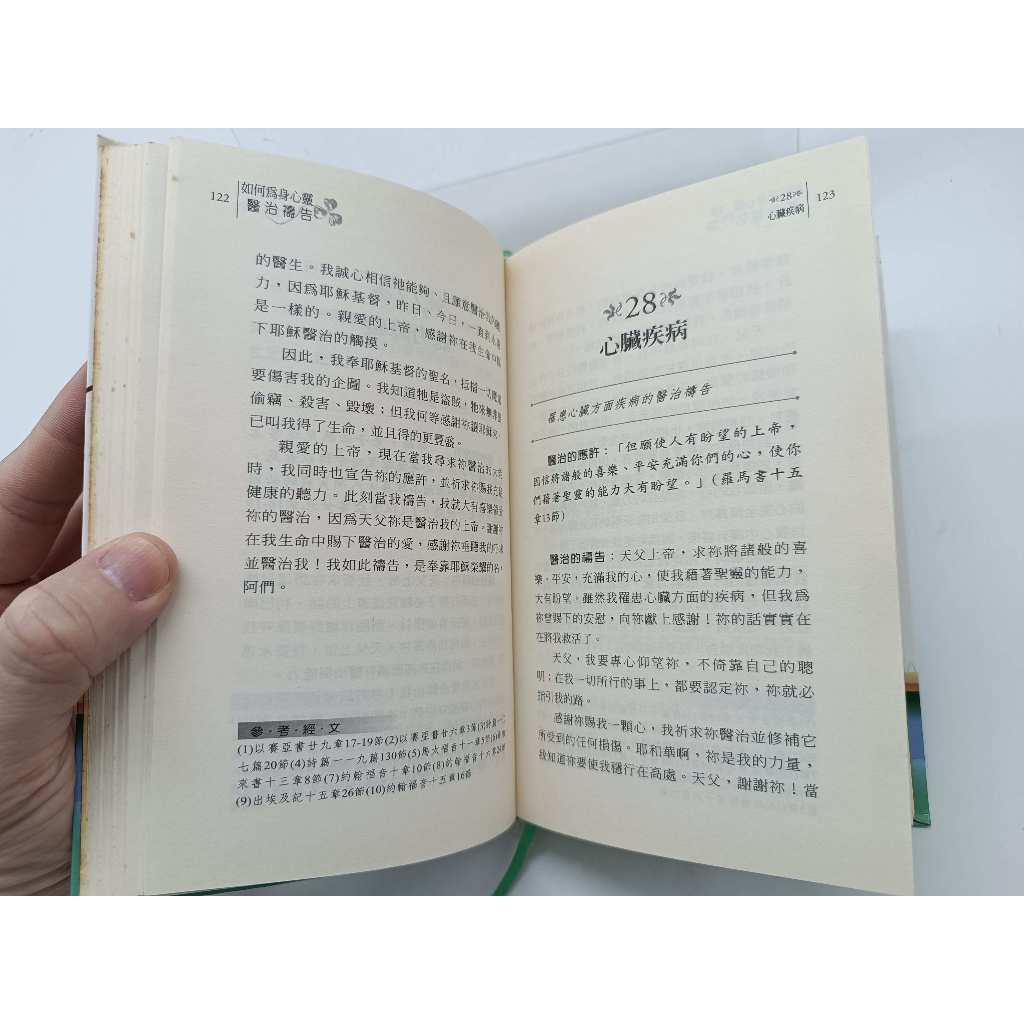 122
如何爲身心靈
醫治禱告
的醫生。我誠心相信祂能夠、且願意醫治我的聽
力，因爲耶穌基督，昨日、今日，一直到永遠
是一樣的。親愛的上帝，感謝祢在我生命中賜
下耶穌醫治的觸摸。
因此，我奉耶穌基督的聖名，拒絕一切
要傷害我的企圖。我知道牠是盜賊，牠來無非要
偷竊、殺害、毀壞；但我何等感謝祢
已叫我得了生命，並且得的更豐盛。
親愛的上帝，現在當我尋求祢醫治的大能
時，我同時也宣告祢的應許，並祈求祢賜我
健康的聽力。此刻當我禱告，我就大有
祢的醫治，因爲天父祢是醫治我的上帝。謝謝祢
在我生命中賜下醫治的愛，感謝祢垂聽我的
並醫治我！我如此禱告，是奉靠耶穌榮耀的名，
阿們。
參·考·經·文
(1)以賽亞書廿九章17-19節(2)以賽亞書廿六章3節(3)詩篇一
七篇20節(4)詩篇一一九篇130節(5)馬太福音十一章5節(6)希伯
來書十三章8節(7)約翰福音十章10節(8)約翰福音十六章24節
(9)出埃及記十五章26節(10)約翰福音十五章16節
28
心臟疾病
123
28
心臟疾病
罹患心臟方面疾病的醫治禱告
醫治的應許：「但願使人有盼望的上帝，
因信將諸般的喜樂、平安充滿你們的心，使你
們藉著聖靈的能力大有盼望。」（羅馬書十五
章13節）
醫治的禱告：天父上帝，求祢將諸般的喜
樂、平安，充滿我的心，使我藉著聖靈的能力，
大有盼望。雖然我罹患心臟方面的疾病，但我爲
祢曾賜下的安慰，向祢獻上感謝！祢的話實實在
在將我救活了。
天父，我要專心仰望祢，不倚靠自己的聰
明；在我一切所行的事上，都要認定祢，祢就必
指引我的路。
感謝祢賜我一顆心，我祈求祢醫治並修補它
所受到的任何損傷。耶和華啊，祢是我的力量，
我知道祢要使我穩行在高處。天父，謝謝祢！當